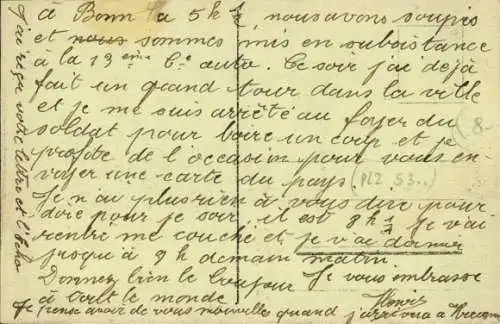 à Bonn à 5h ½, nous avons soupés
et nous sommes mis en subsistance
à la 13ème Cie auto. Ce soir j'ai dejà
fait un grand tour dans la ville
et je me suis arrêté au foyer du
soldat pour boire un coup et je
profite de l'occasion pour vous en-
voyer une carte du pays.
Je n'ai plus rien à vous dire pour-
dire pour je soir, il est 8h ½ Je vai
rentré me couché et je vai dormir
jusqu'à 8h demain matin.
Donnez bien le bonjour Je vous embrasse
à tout le monde Henri
Je pense avoir de vous nouvelles quand j'arriverai à
J'ai reçu votre lettre et l'Echo
(PLZ 53..)
8.